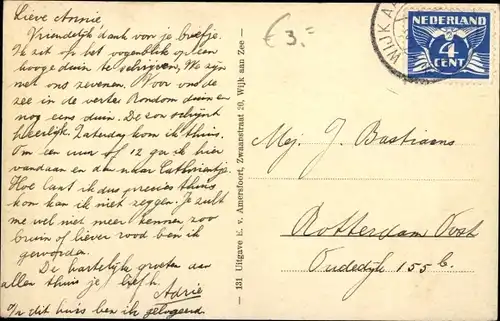 Lieve Annie,
Vriendelijk dank voor je briefje.
Ik zit op het oogenblik op een
hooge duin te schrijven. We zijn
met ons zevenen. Voor ons de
zee in de verte. Rondom duin en
nog eens duin. De zon schijnt
heerlijk. Zaterdag kom ik thuis.
Om een uur of 12 ga ik hier
vandaan en dan naar
Hoe laat ik dus precies thuis
kom kan ik niet zeggen. Je zult
me wel niet meer kennen zoo
bruin of liever rood ben ik
geworden.
De hartelijke groeten aan
allen thuis je liefh.
Adrie
In dit huis ben ik gelogeerd
131 Uitgave E. v. Amersfoort, Zwaanstraat 20, Wijk aan Zee
€ 3,=
WIJK A
NEDERLAND
4
CENT
Mej. J. Bastiaans
Rotterdam Oost
Oudedijk 155 b.